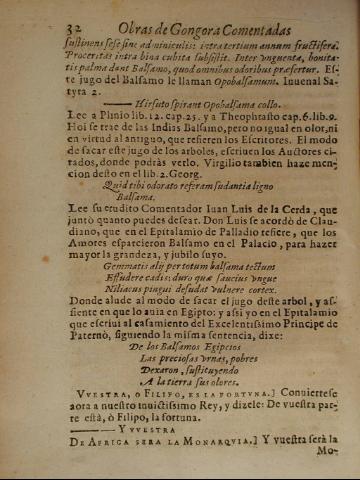 32 Obras de Gongora Comentadas
sustinens sese sine adminiculis: intra tertium annum fructifera.
Proceritas intra bina cubita subsistit. Inter vnguenta, bonita-
tis palma dant Balsamo, quod omnibus odoribus præfertur. Es-
te jugo del Balsamo le llaman Opobalsamum. Iuuenal Sa-
tyra 2.
Hirsuto spirant Opobalsama collo.
Lee a Plinio lib. 12. cap. 25. y a Theophrasto cap. 6. lib. 9.
Hoi se trae de las Indias Balsamo, pero no igual en olor, ni
en virtud al antiguo, que refieren los Escritores. El modo
de sacar este jugo de los arboles, escriuen los Auctores ci-
tados, donde podràs verlo. Virgilio tambien haze men-
cion desto en el lib. 2. Georg.
Quid tibi odorato referam sudantia ligno
Balsama.
Lee su erudito Comentador Iuan Luis de la Cerda, que
juntò quanto puedes desear. Don Luis se acordò de Clau-
diano, que en el Epitalamio de Palladio refiere, que los
Amores esparcieron Balsamo en el Palacio, para hazer
mayor la grandeza, y jubilo suyo.
Gemmatis alij per totum balsama tectum
Effudere cadis: duro quæ saucius vngue
Niliacus pingui desudat vulnere cortex.
Donde alude al modo de sacar el jugo deste arbol, y as-
siente en que lo auia en Egipto: y assi yo en el Epitalamio
que escriui al casamiento del Excelentissimo Principe de
Paternò, siguiendo la misma sentencia, dixe:
De los Balsamos Egipcios
Las preciosas vrnas, pobres
Dexaron, sustituyendo
A la tierra sus olores.
VVESTRA, O FILIPO, ES LA FORTVNA.] Conuiertese
aora a nuestro inuictissimo Rey, y dizele: De vuestra par-
te està, ò Filipo, la fortuna.
Y VVESTRA
DE AFRICA SERA LA MONARQVIA.] Y vuestra serà la
Mo-